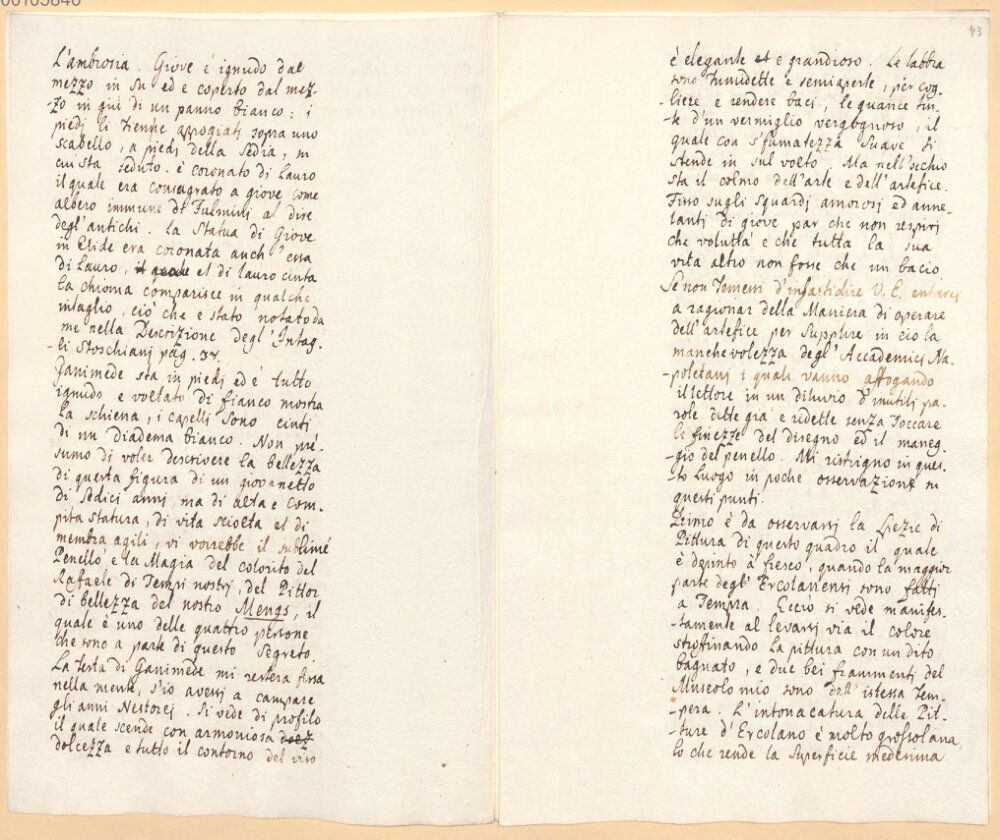 00105846
L'ambrosia. Giove è ignudo dal
mezzo in su ed e coperto dal mez-
-zo in giù di un panno bianco: i
piedj li Tienne appogiatj sopra uno
scabello, a piedj della Sedia, in
cui sta seduto. è coronato di Lauro
il quale era consagrato a giove come
albero immune de Fulminj al dire
degl'antichi. La Statua di Giove
in Elide era coronata anch'essa
di Lauro, il quale et di lauro cinta
la chioma comparisce in qualche
intaglio, ciò che e stato notato da
me nella Descrizione degl'Intag-
-li Stoschianj pag. 37.
Ganimede sta in piedj ed è tutto
ignudo e voltato di fianco mostra
la schiena, i capelli sono cinti
di un diadema bianco. Non pre-
sumo di voler descrivere la bellezza
di questa figura di un giovanetto
di Sedici annj, ma di alta e com-
pita statura, di vita sciolta et di
membra agili, vi vorrebbe il sublime
Penello e la Magia del colorito del
Rafaele di Tempi nostrj, del Pittor
di bellezza del nostro Mengs, il
quale è uno delle quattro persone
che sono a parte di questo Segreto.
La testa di Ganimede mi restera fissa
nella mente, s'io avessj a campare
gli anni Nestorej. Si vede di profilo
il quale scende con armoniosa dolz
dolcezza e tutto il contorno del viso
43
è elegante et e grandioso. Le labbra
sono Tumidette e semiaperte, per cog-
liere e rendere bacj, le guance tin-
-te d'un vermiglio vergognoso, il
quale con sfumatezza suave si
stende in sul volto. Ma nell'occhio
sta il colmo dell'arte e dell'artefice.
Fino sugli Sguardj amorosj ed anne-
lanti di giove par che non respirj
che volutta e che tutta la sua
vita altro non fosse che un bacio.
Se non Temessi d'infastidire V. E. entrarej
a ragionar della Maniera di operare
dell'artefice per Supplire in cio la
manchevolezza degl'Accademici Na-
-poletanj i quali vanno affogando
il lettore in un diluvio d'inutili pa-
role dette gia e ridette senza Toccare
le finezze del disegno ed il maneg-
-gio del penello. Mi ristrigno in ques-
-to Luogo in poche osservazioni in
questi punti.
Primo è da osservarsj la Spezie di
Pittura di questo quadro il quale
è depinto a fresco, quando la maggior
parte degl'Ercolanensi sono fatti
a Tempra. Ecciò si vede manifes-
-tamente al levarsj via il colore
strofinando la pittura con un dito
bagnato, e due bei frammenti del
Museolo mio sono dell'istessa Tem-
-pera. L'intonacatura delle Pit-
-ture d'Ercolano è molto grossolana,
lo che rende la Superficie medesima